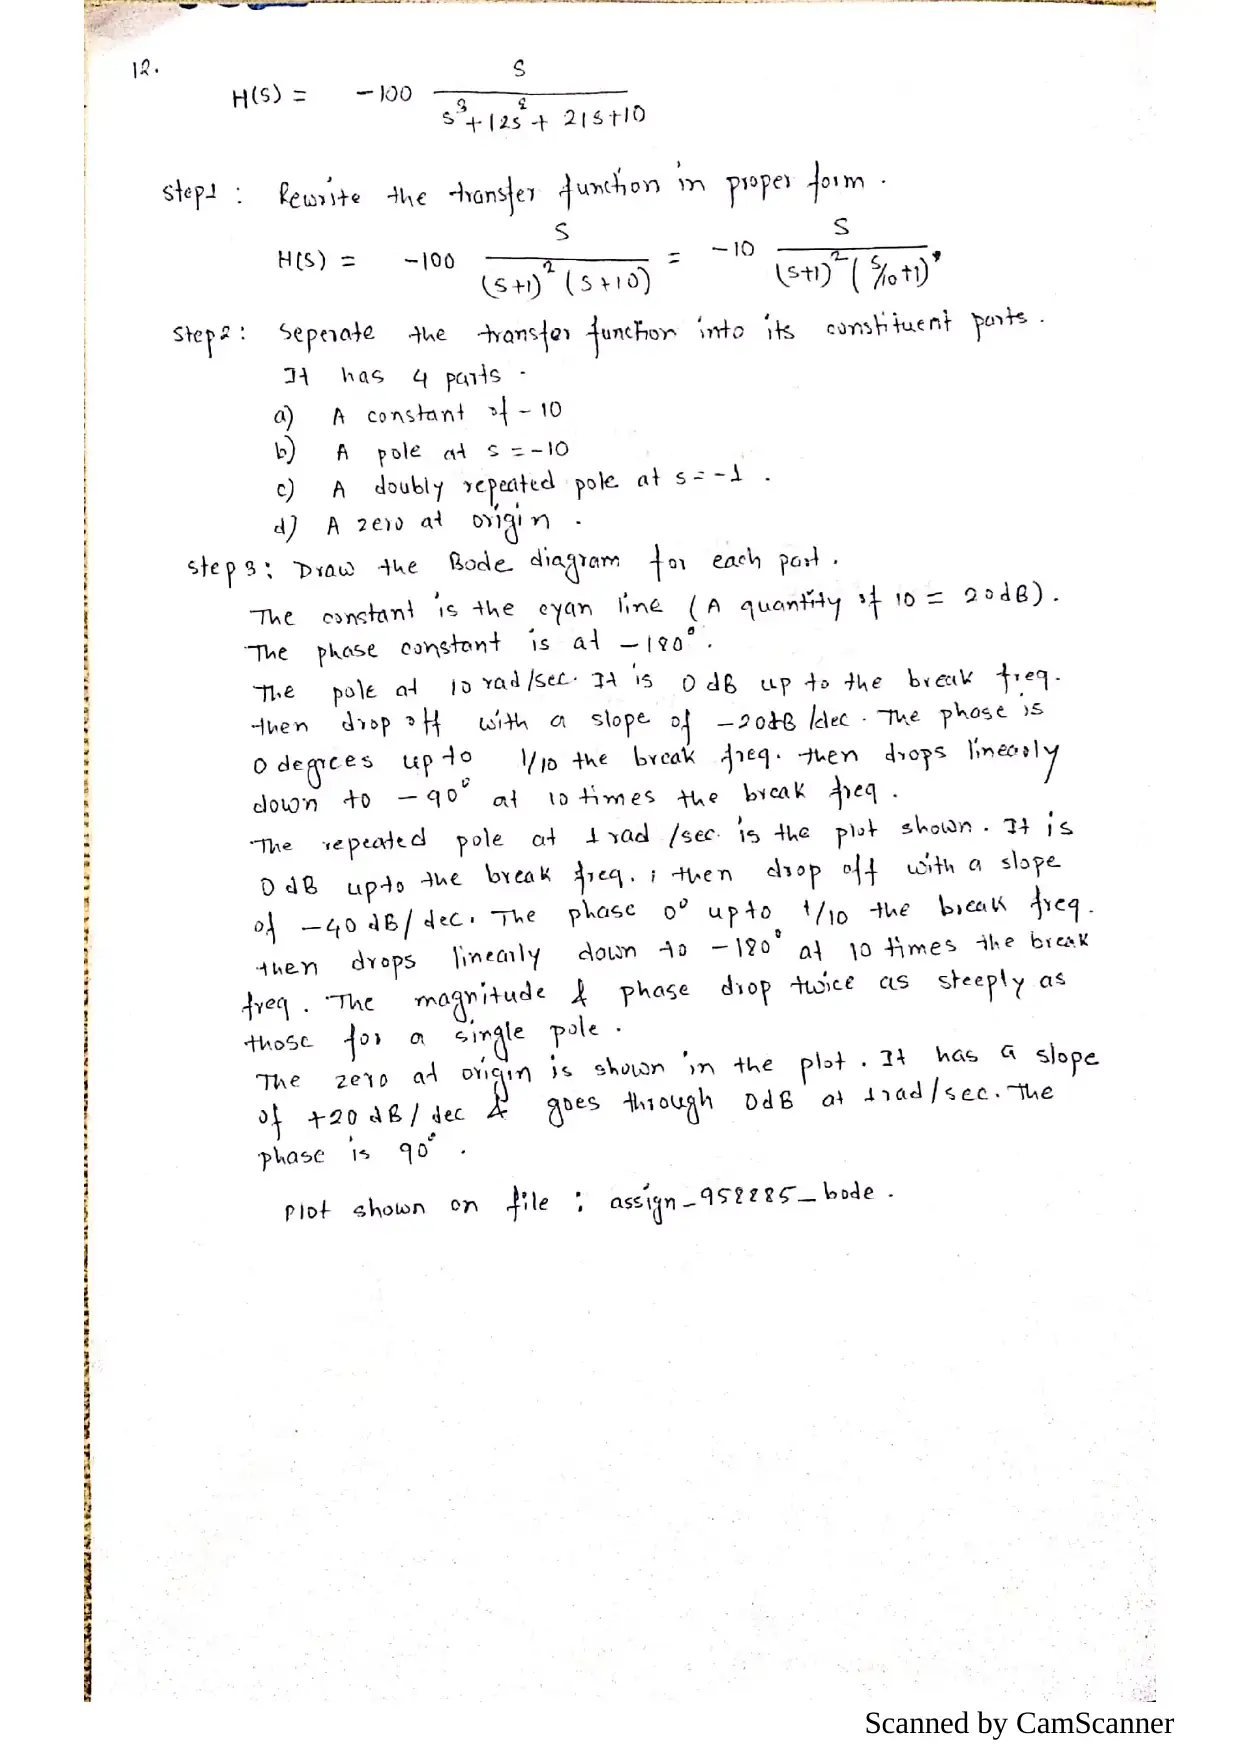 12.
H(S) = -100 S / S³+12S²+21S+10
Step1 : Rewrite the transfer function in proper form .
H(S) = -100 S / (S+1)² (S+10) = -10 S / (S+1)² (S/10+1)
Step2 : Seperate the transfer function into its constituent parts .
It has 4 parts .
a) A constant of -10
b) A pole at s = -10
c) A doubly repeated pole at s = -1 .
d) A zero at origin .
step 3 : Draw the Bode diagram for each part .
The constant is the cyan line ( A quantity of 10 = 20dB ) .
The phase constant is at -180° .
The pole at 10 rad/sec. It is 0 dB up to the break freq.
then drop off with a slope of -20dB/dec . The phase is
0 degrees up to 1/10 the break freq. then drops linearly
down to -90° at 10 times the break freq .
The repeated pole at 1 rad/sec. is the plot shown . It is
0 dB upto the break freq. ; then drop off with a slope
of -40 dB/dec. The phase 0° upto 1/10 the break freq.
then drops linearly down to -180° at 10 times the break
freq . The magnitude & phase drop twice as steeply as
those for a single pole .
The zero at origin is shown in the plot . It has a slope
of +20 dB/dec & goes through 0dB at 1rad/sec. The
phase is 90° .
Plot shown on file : assign_958285_bode .
Scanned by CamScanner